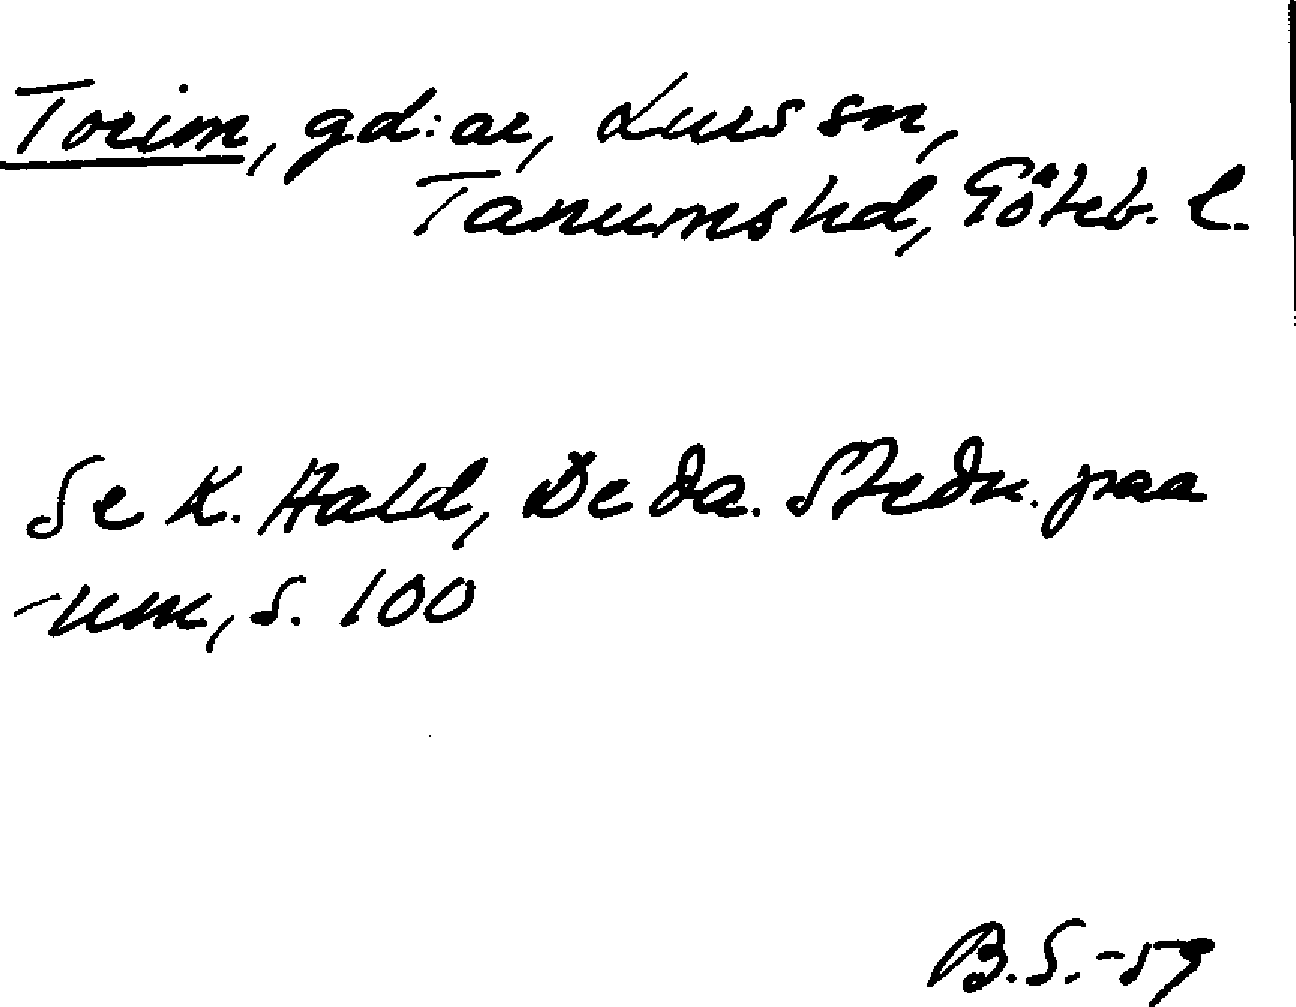 Torim, gd:ar, Lurs sn,
Tanums hd, Göteb. l.
Se K. Hald, De da. Stedn. paa
-um, s. 100
B.S.-59